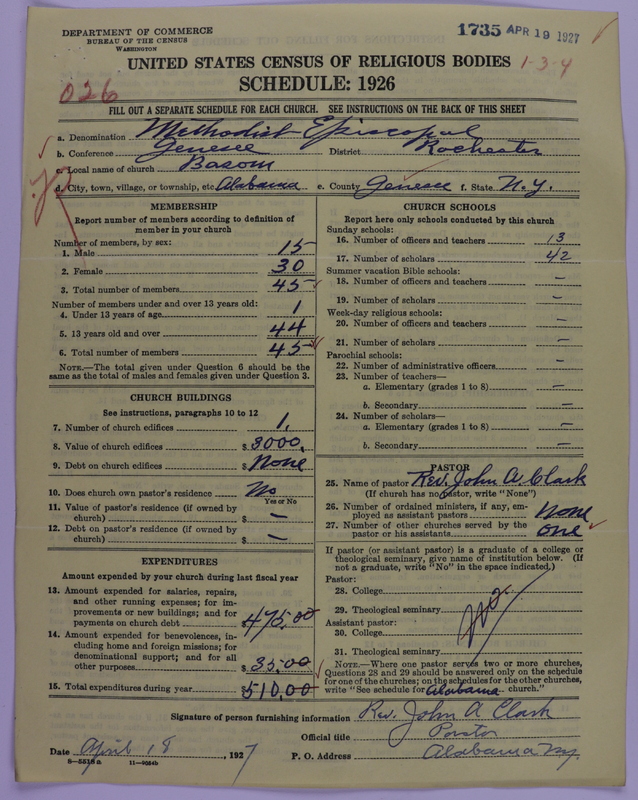 DEPARTMENT OF COMMERCE
BUREAU OF THE CENSUS
WASHINGTON
1735 APR 19 1927
UNITED STATES CENSUS OF RELIGIOUS BODIES
1-3-4
SCHEDULE: 1926
026
FILL OUT A SEPARATE SCHEDULE FOR EACH CHURCH. SEE INSTRUCTIONS ON THE BACK OF THIS SHEET
a. Denomination Methodist Episcopal
b. Conference Genesee District Rochester
c. Local name of church Basom
d. City, town, village, or township, etc Alabama e. County Genesee f. State N.Y.
MEMBERSHIP
Report number of members according to definition of
member in your church
Number of members, by sex:
1. Male 15
2. Female 30
3. Total number of members 45
Number of members under and over 13 years old:
4. Under 13 years of age 1
5. 13 years old and over 44
6. Total number of members 45
NOTE.—The total given under Question 6 should be the
same as the total of males and females given under Question 3.
CHURCH BUILDINGS
See instructions, paragraphs 10 to 12
7. Number of church edifices 1,
8. Value of church edifices $ 3000,
9. Debt on church edifices $ None
10. Does church own pastor's residence No
Yes or No
11. Value of pastor's residence (if owned by
church) $ —
12. Debt on pastor's residence (if owned by
church) $ —
EXPENDITURES
Amount expended by your church during last fiscal year
13. Amount expended for salaries, repairs,
and other running expenses; for im-
provements or new buildings; and for
payments on church debt $ 475.00
14. Amount expended for benevolences, in-
cluding home and foreign missions; for
denominational support; and for all
other purposes $ 35.00
15. Total expenditures during year $ 510.00
CHURCH SCHOOLS
Report here only schools conducted by this church
Sunday schools:
16. Number of officers and teachers 13
17. Number of scholars 42
Summer vacation Bible schools:
18. Number of officers and teachers —
19. Number of scholars —
Week-day religious schools:
20. Number of officers and teachers —
21. Number of scholars —
Parochial schools:
22. Number of administrative officers —
23. Number of teachers—
a. Elementary (grades 1 to 8) —
b. Secondary —
24. Number of scholars—
a. Elementary (grades 1 to 8) —
b. Secondary —
PASTOR
25. Name of pastor Rev. John A. Clark
(If church has no pastor, write "None")
26. Number of ordained ministers, if any, em-
ployed as assistant pastors None
27. Number of other churches served by the
pastor or his assistants One
If pastor (or assistant pastor) is a graduate of a college or
theological seminary, give name of institution below. (If
not a graduate, write "No" in the space indicated.)
Pastor:
28. College
29. Theological seminary No.
Assistant pastor:
30. College
31. Theological seminary
NOTE.—Where one pastor serves two or more churches,
Questions 28 and 29 should be answered only on the schedule
for one of the churches; on the schedules for the other churches,
write "See schedule for Alabama church."
Signature of person furnishing information Rev. John A Clark
Official title Pastor
Date April 18, 1927 P. O. Address Alabama NY.
8—5518a 11—9664b